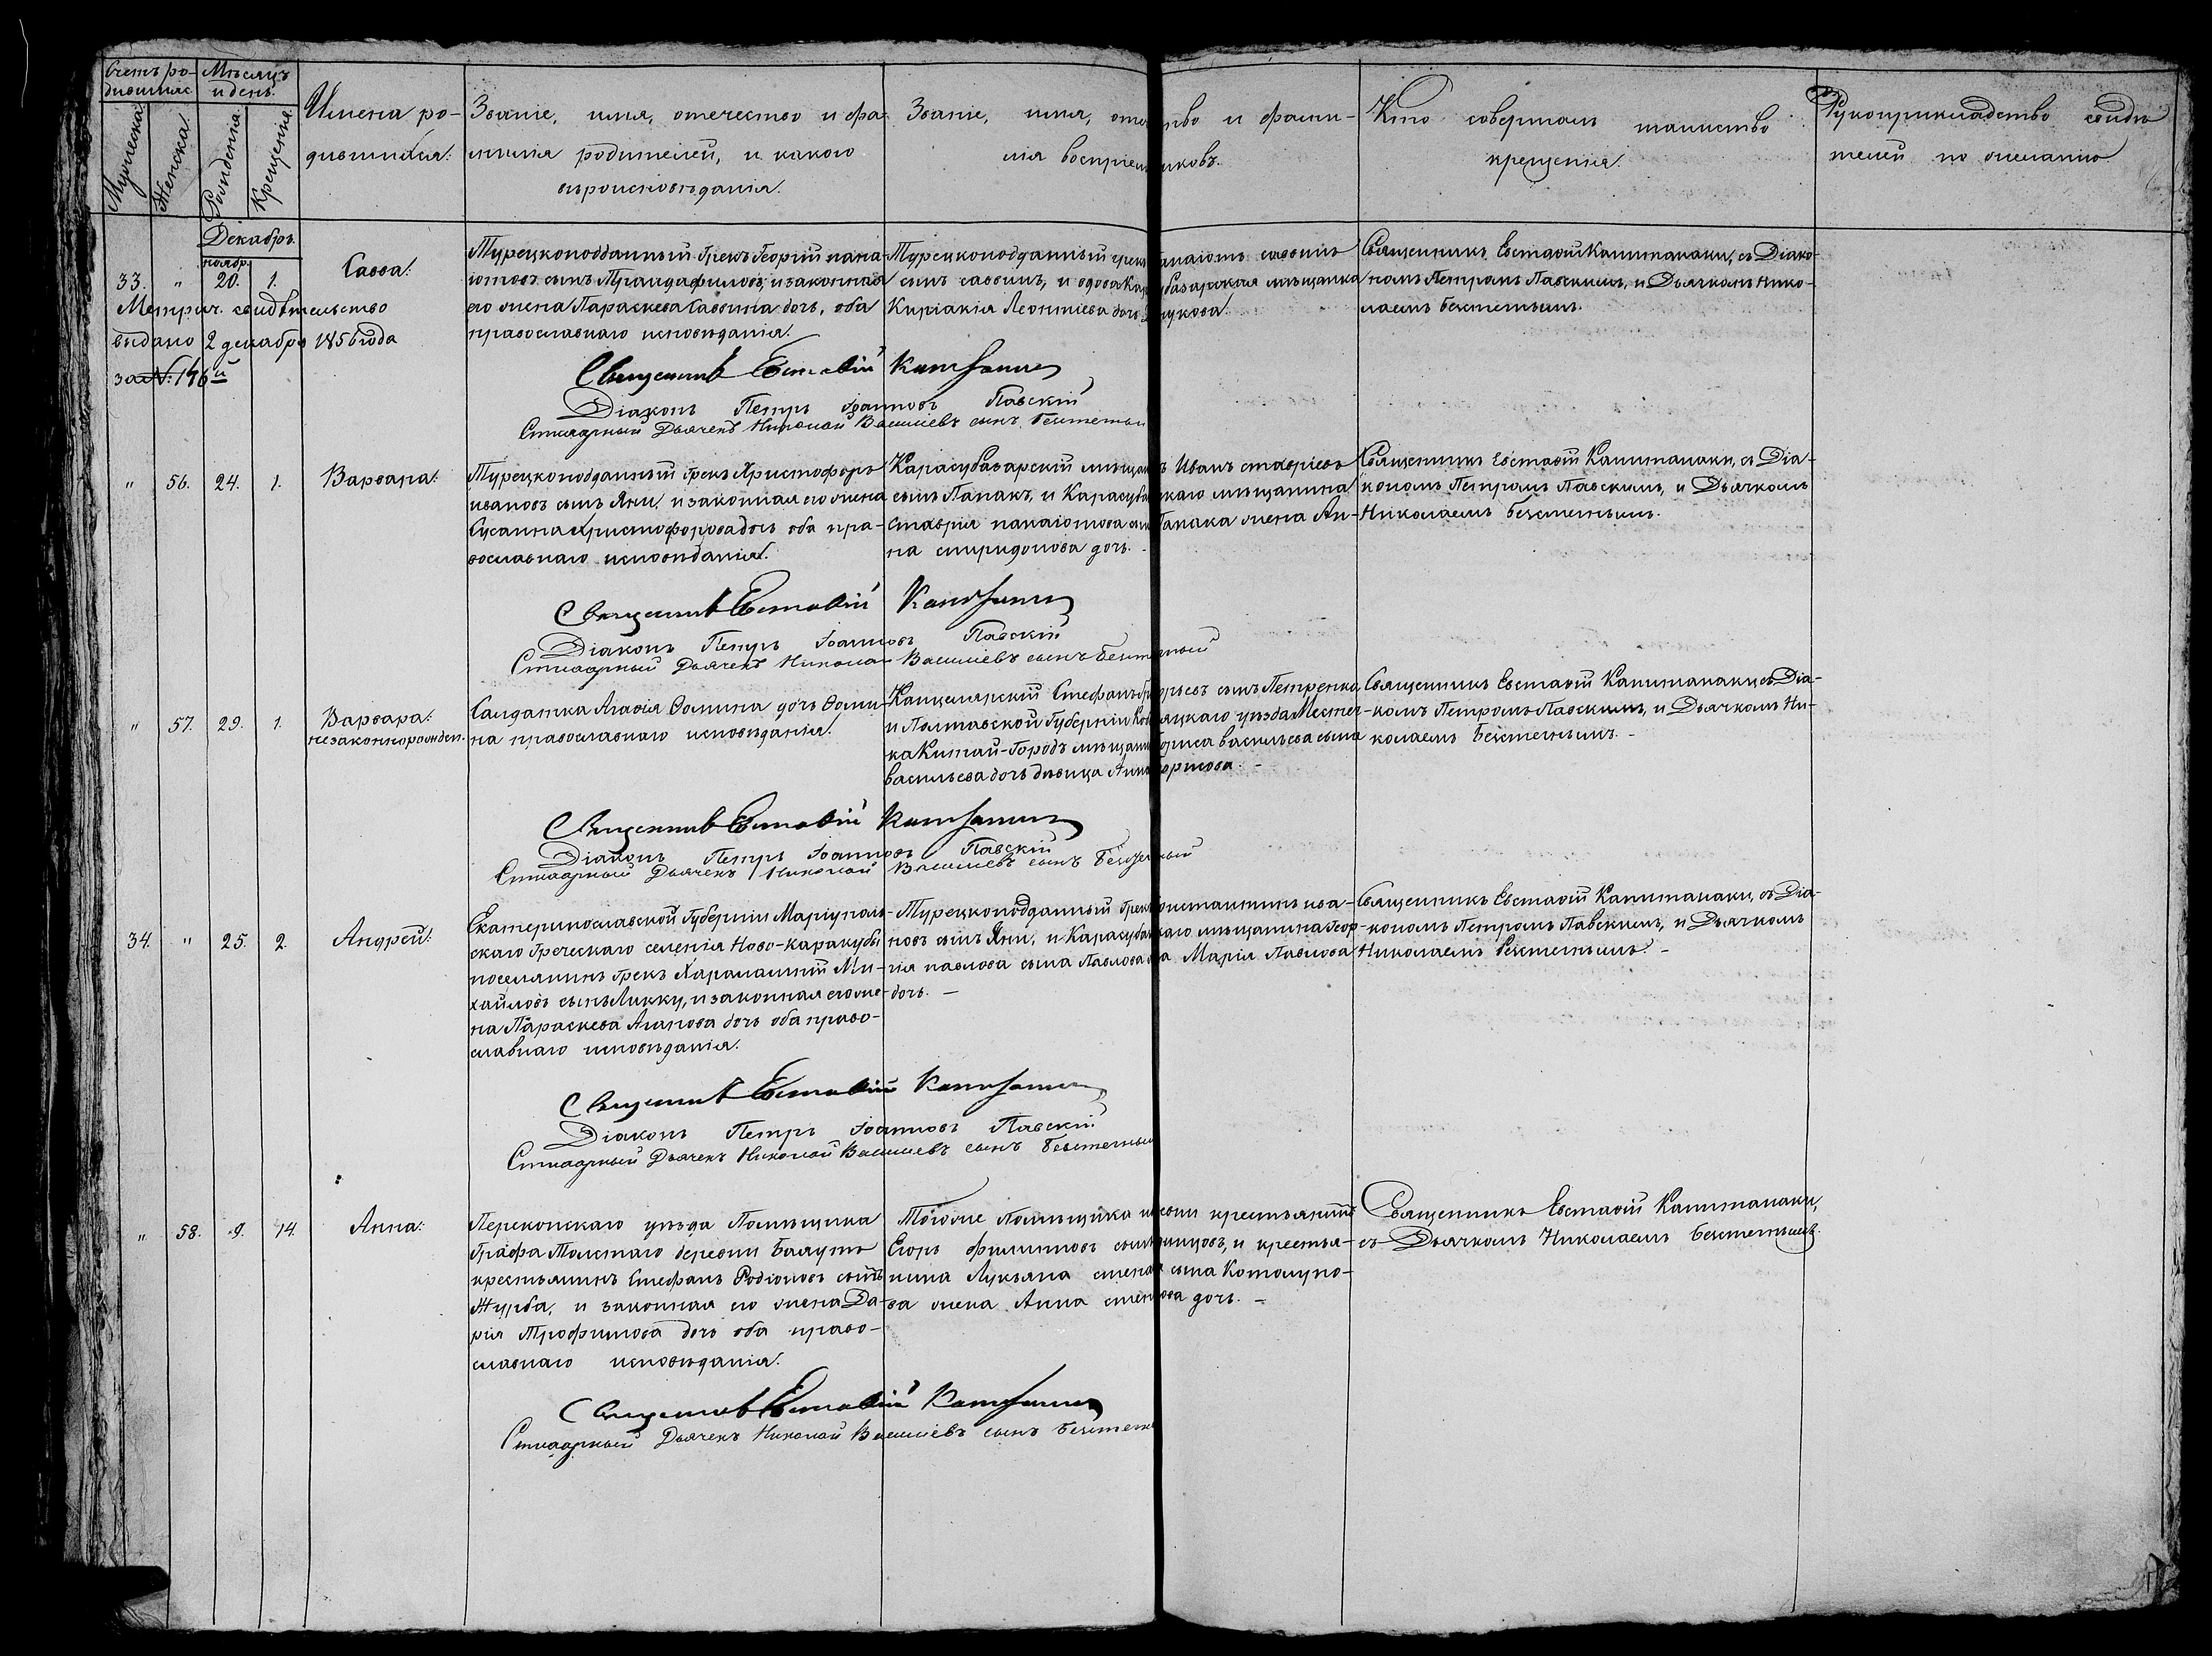 Счетъ ро-
дившихся
Мѣсяцъ
и день.
Мужеска.
Женска.
Рожденія.
Крещенія.
Имена ро-
дившихся:
Званіе, имя, отечество и фа-
милія родителей, и какого
вѣроисповѣданія.
Званіе, имя, отечество и фами-
лія воспріемниковъ.
Кто совершалъ таинство
крещенія.
Рукоприкладство свидѣ
телей по желанію
Декабрь
ноябр.
33. " 20. 1.
Савва:
Турецкоподданный Грекъ Георгій пана-
іотовъ сынъ Трандафиловъ, и законная
его жена Параскева Саввина дочь, оба
православнаго исповѣданія.
Турецкоподданный грекъ саввинъ
сынъ саввинъ, и вдова мѣщанка
Киріакія Леонтіева дочь
Священникъ Евстафій Капитанаки, съ Діако-
номъ Петромъ Павскимъ, и Дьячкомъ Нико-
лаемъ Бекетнымъ.
Метрич. свидѣтельство
выдано 2 декабря 1856 года
за № 146й
Священникъ Евстафій
Діаконъ Петръ Іоанновъ Павскій
Стихарный Дьячекъ Николай Васильевъ сынъ
" 56. 24. 1.
Варвара:
Турецкоподданный Грекъ Христофоръ
ивановъ сынъ Яни, и законная его жена
Сусанна Христофорова дочь оба пра-
вославнаго исповѣданія.
Карасубазарскій мѣщанинъ Иванъ ставріевъ
сынъ Папакъ, и Карасубазарскаго мѣщанина
Ставрія панаіотова Папака жена Ан-
на спиридонова дочь.
Священникъ Евстафій Капитанаки, съ Діа-
кономъ Петромъ Павскимъ, и Дьячкомъ
Николаемъ Бекетнымъ.
Священникъ Евстафій
Діаконъ Петръ Іоанновъ Павскій
Стихарный Дьячекъ Николай Васильевъ сынъ
" 57. 29. 1.
Варвара:
незаконнорожден.
Салдатка Агафія Фомина дочь Фоми-
на православнаго исповѣданія.
Канцелярскій Стефанъ сынъ Петренко
и Полтавской Губерніи уѣзда Местеч-
ка Китай-Городъ мѣщанина Бориса васильева сына
васильева дочь дѣвица Анна борисова. -
Священникъ Евстафій Капитанаки съ Діа-
комъ Петромъ Павскимъ, и Дьячкомъ Ни-
колаемъ Бекетнымъ. -
Священникъ Евстафій
Діаконъ Петръ Іоанновъ Павскій
Стихарный Дьячекъ Николай Васильевъ сынъ
34. " 25. 2.
Андрей:
Екатеринославской Губерніи Маріуполь-
скаго Греческаго селенія Ново-каракубы
поселянинъ Грекъ Харалампій Ми-
хайловъ сынъ Ликки, и законная его же-
на Параскева Агапова дочь оба право-
славнаго исповѣданія.
Турецкоподданный Грекъ Константинъ ива-
новъ сынъ Яни, и Карасубазарскаго мѣщанина Геор-
гія павлова сына Павлова Марія Павлова
дочь. -
Священникъ Евстафій Капитанаки, съ Діа-
кономъ Петромъ Павскимъ, и Дьячкомъ
Николаемъ Бекетнымъ. -
Священникъ Евстафій
Діаконъ Петръ Іоанновъ Павскій
Стихарный Дьячекъ Николай Васильевъ сынъ
" 58. 9. 14.
Анна:
Перекопскаго уѣзда Помѣщика
Графа Толстаго деревни
крестьянинъ Стефанъ Родіоновъ сынъ
Журба, и законная его жена Да-
рія Трофимова дочь оба право-
славнаго исповѣданія.
Тогоже Помѣщика крестьянинъ
Егоръ филиповъ и крестья-
нина Лукьяна сына Котолупо-
ва жена Анна дочь. -
Священникъ Евстафій Капитанаки,
съ Дьячкомъ Николаемъ Бекетнымъ.
Священникъ Евстафій
Стихарный Дьячекъ Николай Васильевъ сынъ